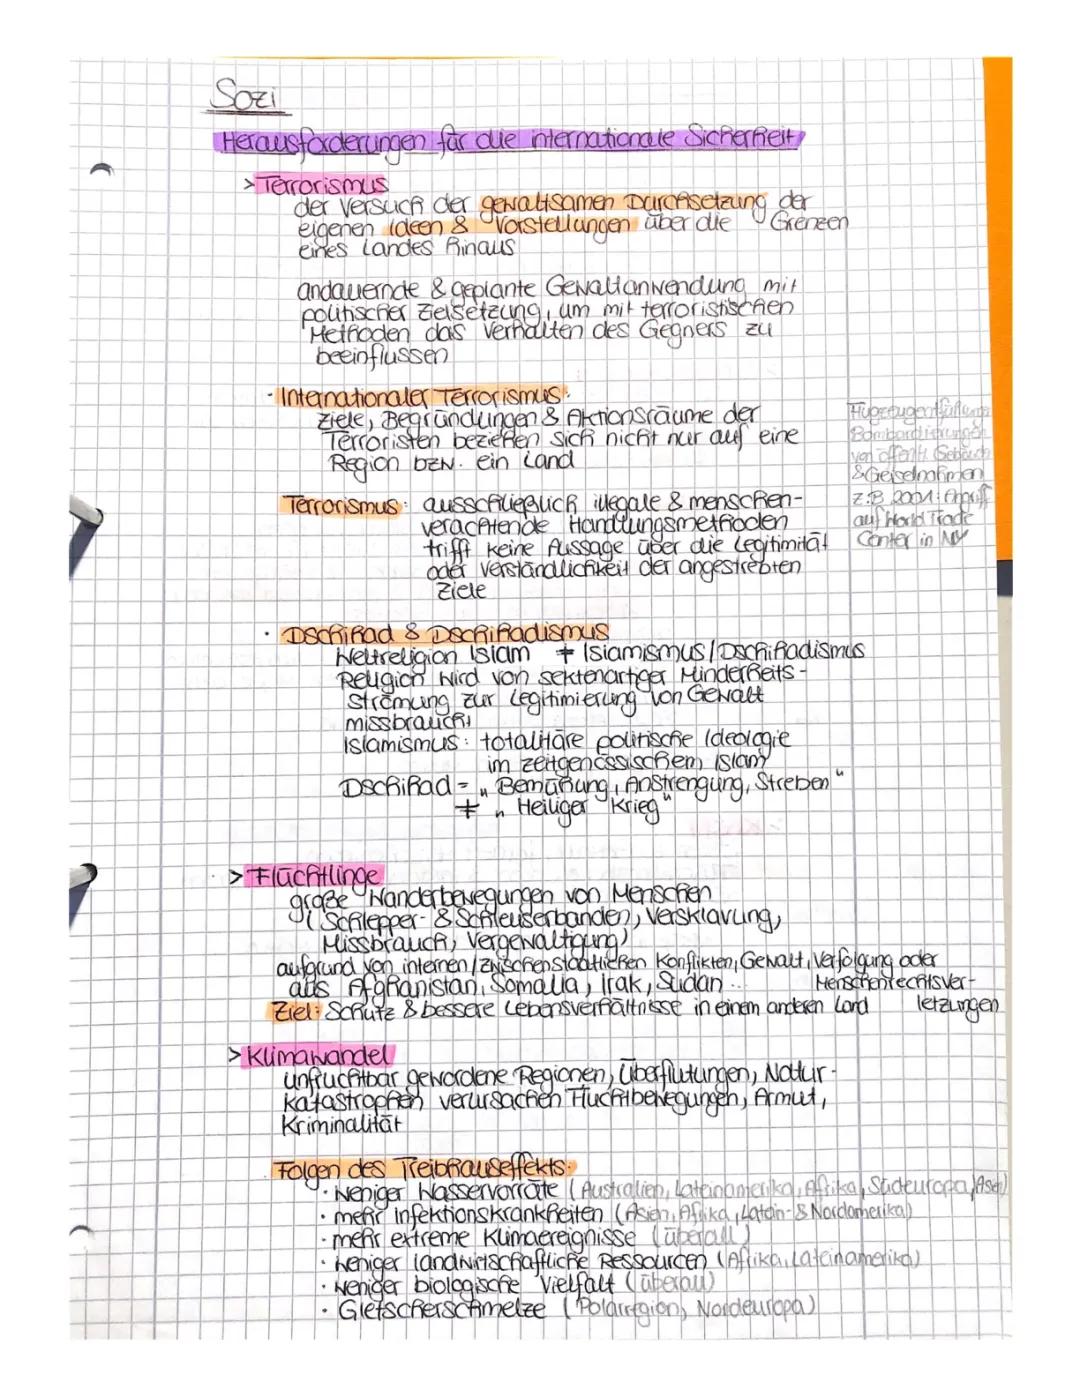 Sozi
Herausforderungen für die internationale Sicherheit
> Terrorismus
der Versuch der gewaltsamen Durchsetzung der
eigenen Ideen & Vorstellungen über die Grenzen
eines Landes hinaus
andauernde & geplante Gewaltanwendung mit
politischer Zielsetzung, um mit terroristischen
Methoden das Verhalten des Gegners zu
beeinflussen
· Internationaler Terrorismus:
Ziele, Begründungen & Aktionsräume der
Terroristen beziehen sich nicht nur auf eine
Region bzw. ein Land
Flugzeugentführung
Bombardierungen
von öffentl. Gebäud
& Geiselnahmen
z.B 2001: Angriff
auf World Trade
Center in NY
Terrorismus: ausschließlich illegale & menschen-
verachtende Handlungsmethoden
trifft keine Aussage über die Legitimität
oder Verständlichkeit der angestrebten
Ziele
· Dschihad & Dschihadismus
Weltreligion Islam ≠ Islamismus/Dschihadismus
Religion wird von sektenartiger Minderheits-
strömung zur Legitimierung von Gewalt
missbraucht
Islamismus: totalitäre politische Ideologie
im zeitgenössischem Islam
Dschihad = „Bemühung, Anstrengung, Streben“
≠ „Heiliger Krieg“
> Flüchtlinge
große Wanderbewegungen von Menschen
(Schlepper- & Schleuserbanden, Versklavung,
Missbrauch, Vergewaltigung)
aufgrund von internen/zwischenstaatlichen Konflikten, Gewalt, Verfolgung oder
Menschenrechtsver-
letzungen
aus Afghanistan, Somalia, Irak, Sudan...
Ziel: Schutz & bessere Lebensverhältnisse in einem anderen Land
> Klimawandel
unfruchtbar gewordene Regionen, Überflutungen, Natur-
katastrophen verursachen Fluchtbewegungen, Armut,
Kriminalität
Folgen des Treibhauseffekts:
· weniger Wasservorräte (Australien, Lateinamerika, Afrika, Südeuropa, Asien)
· mehr Infektionskrankheiten (Asien, Afrika, Latein- & Nordamerika)
· mehr extreme Klimaereignisse (überall)
· weniger landwirtschaftliche Ressourcen (Afrika, Lateinamerika)
· weniger biologische Vielfalt (überall)
· Gletscherschmelze (Polarregion, Nordeuropa)